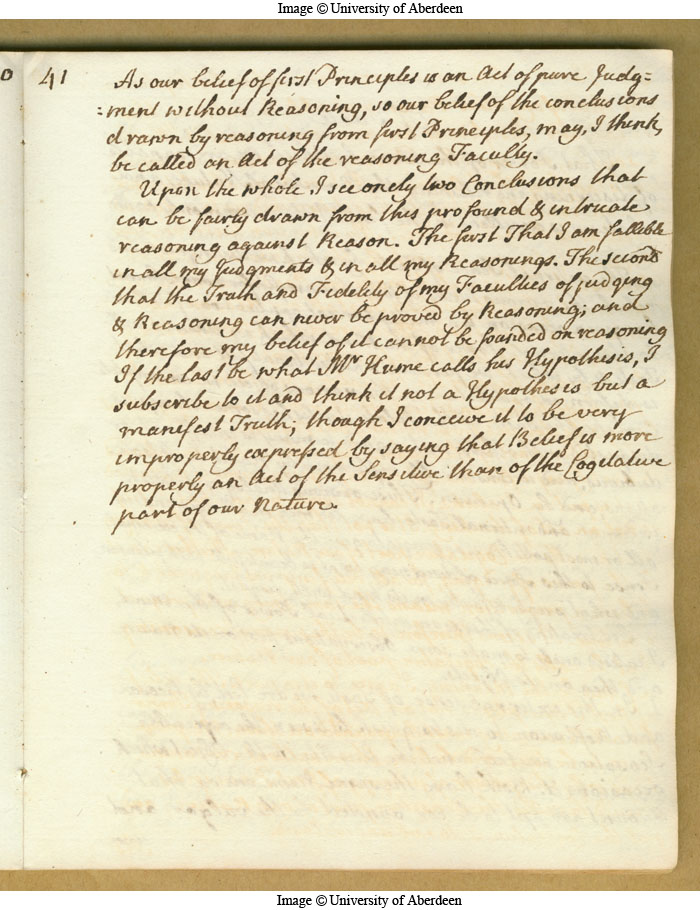 Image © University of Aberdeen
0
41
As our belief of first Principles is an Act of pure Judg=
=ment without Reasoning, so our belief of the conclusions
drawn by reasoning from first Principles, may, I think,
be called an Act of the reasoning Faculty.
Upon the whole I see onely two Conclusions that
can be fairly drawn from this profound & intricate
reasoning against Reason. The first That I am fallible
in all my Judgments & in all my Reasonings. The second
that the Truth and Fidelity of my Faculties of judging
& Reasoning can never be proved by Reasoning; and
therefore my belief of it cannot be founded on reasoning
If the last be what Mr Hume calls his Hypothesis, I
subscribe to it and think it not a Hypothesis but a
manifest Truth; though I conceive it to be very
improperly expressed by saying that Belief is more
properly an Act of the Sensitive than of the Cogitative
part of our Nature.
Image © University of Aberdeen